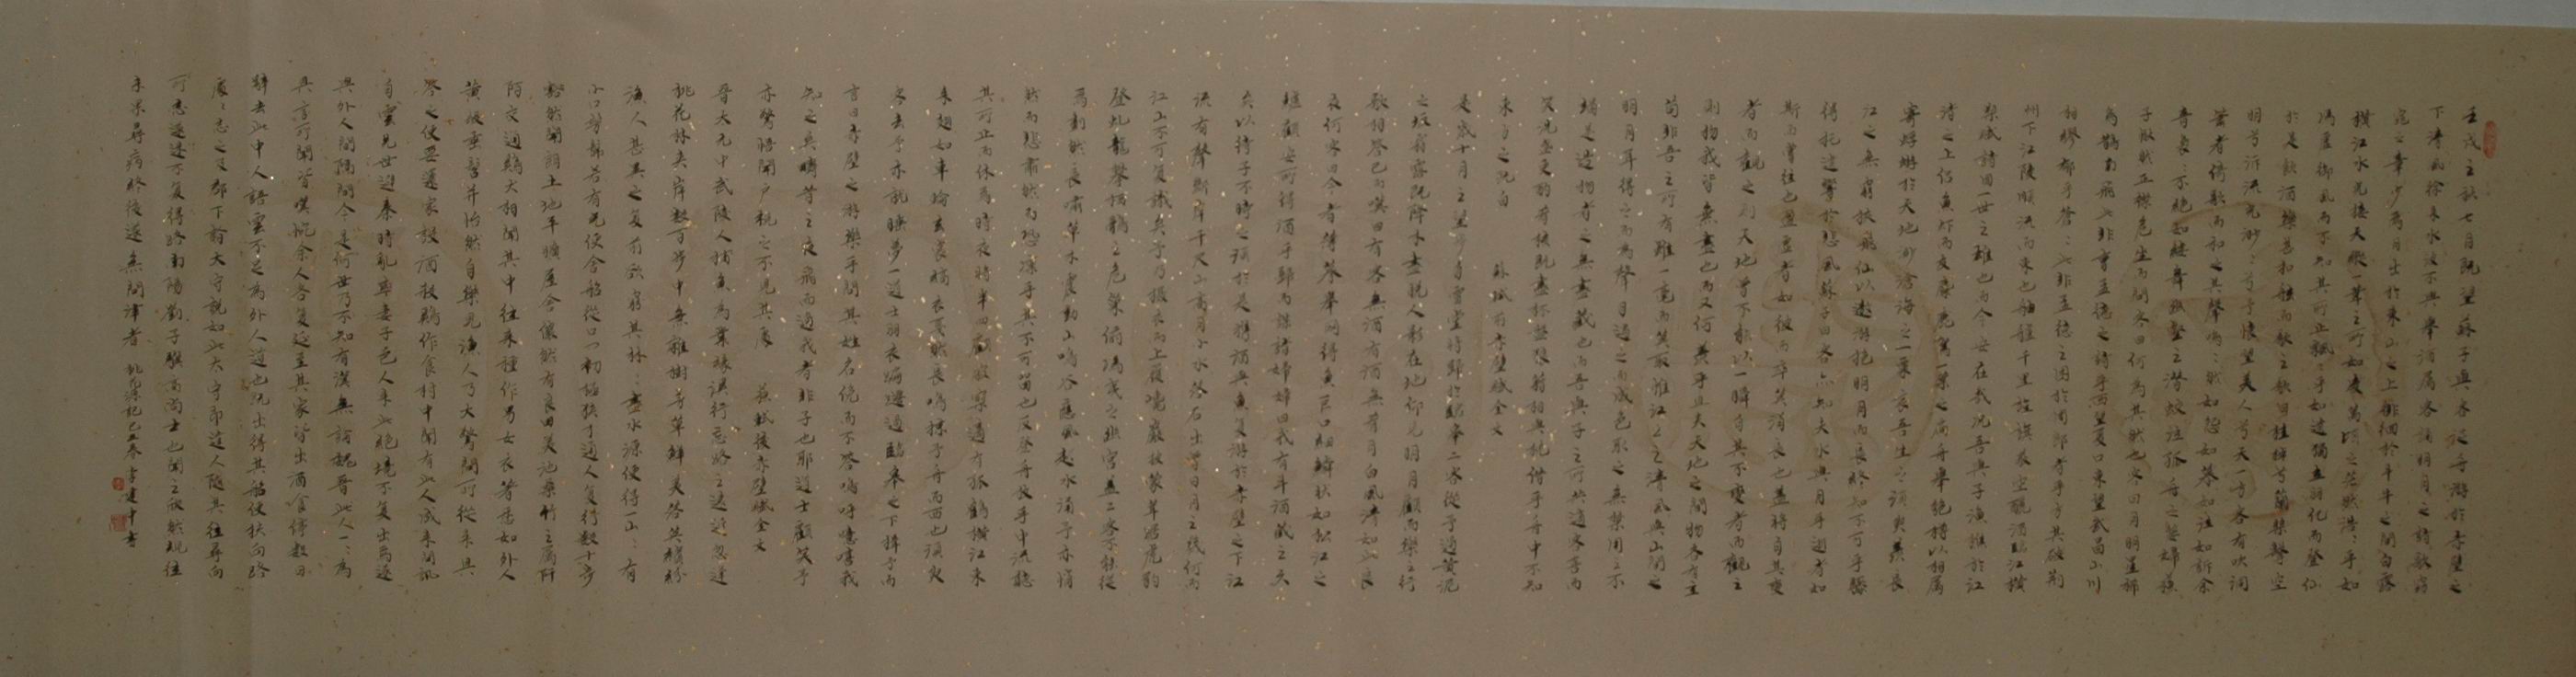 壬戌之秋七月既望蘇子與客泛舟游於赤壁之
下清風徐來水波不興舉酒屬客誦明月之詩歌窈
窕之章少焉月出於東山之上徘徊於斗牛之間白露
橫江水光接天縱一葦之所如凌萬頃之茫然浩々乎如
馮虛御風而不知其所止飄々乎如遺獨立羽化而登仙
於是飲酒樂甚扣舷而歌之歌曰桂棹兮蘭槳擊空
明兮泝流光渺々兮予懷望美人兮天一方客有吹洞
簫者倚歌而和之其聲嗚々然如怨如慕如泣如訴余
音裊々不絕如縷舞幽壑之潛蛟泣孤舟之嫠婦蘇
子愀然正襟危坐而問客曰何為其然也客曰月明星稀
烏鵲南飛此非曹孟德之詩乎西望夏口東望武昌山川
相繆鬱乎蒼々此非孟德之困於周郎者乎方其破荊
州下江陵順流而東也舳艫千里旌旗蔽空釃酒臨江橫
槊賦詩固一世之雄也而今安在哉況吾與子漁樵於江
渚之上侶魚蝦而友麋鹿駕一葉之扁舟舉匏樽以相屬
寄蜉蝣於天地渺滄海之一粟哀吾生之須臾羨長
江之無窮挾飛仙以遨游抱明月而長終知不可乎驟
得托遺響於悲風蘇子曰客亦知夫水與月乎逝者如
斯而嘗往也盈虛者如彼而卒莫消長也蓋將自其變
者而觀之則天地曾不能以一瞬自其不變者而觀之
則物我皆無盡也而又何羨乎且夫天地之間物各有主
苟非吾之所有雖一毫而莫取惟江上之清風與山間之
明月耳得之而為聲目遇之而成色取之無禁用之不
竭是造物者之無盡藏也而吾與子之所共適客喜而
笑洗盞更酌肴核既盡杯盤狼藉相與枕藉乎舟中不知
東方之既白 蘇軾前赤壁賦全文
是歲十月之望步自雪堂將歸於臨皋二客從予過黃泥
之坂霜露既降木葉盡脫人影在地仰見明月顧而樂之行
歌相答已而嘆曰有客無酒有酒無肴月白風清如此良
夜何客曰今者薄暮舉網得魚巨口細鱗狀如松江之
鱸顧安所得酒乎歸而謀諸婦婦曰我有斗酒藏之久
矣以待子不時之須於是攜酒與魚復游於赤壁之下江
流有聲斷岸千尺山高月小水落石出曾日月之幾何而
江山不可復識矣予乃攝衣而上履巉巖披蒙茸踞虎豹
登虬龍攀栖鶻之危巢俯馮夷之幽宮蓋二客不能從
焉劃然長嘯草木震動山鳴谷應風起水涌予亦悄
然而悲肅然而恐凜乎其不可留也反登舟放乎中流聽
其所止而休焉時夜將半四顧寂寥適有孤鶴橫江東
來翅如車輪玄裳縞衣戛然長鳴掠予舟而西也須臾
客去予亦就睡夢一道士羽衣蹁躚過臨皋之下揖予而
言曰赤壁之游樂乎問其姓名俛而不答嗚呼噫嘻我
知之矣疇昔之夜飛而過我者非子也耶道士顧笑予
亦驚悟開戶視之不見其處 蘇軾後赤壁賦全文
晉太元中武陵人捕魚為業緣溪行忘路之遠近忽逢
桃花林夾岸數百步中無雜樹芳草鮮美落英繽紛
漁人甚異之復前行欲窮其林々盡水源便得一山々有
小口髣髴若有光便舍船從口入初極狹才通人復行數十步
豁然開朗土地平曠屋舍儼然有良田美池桑竹之屬阡
陌交通鷄犬相聞其中往來種作男女衣著悉如外人
黃髮垂髫并怡然自樂見漁人乃大驚問所從來具
答之便要還家設酒殺鷄作食村中聞有此人咸來問訊
自雲先世避秦時亂率妻子邑人來此絕境不復出焉遂
與外人間隔問今是何世乃不知有漢無論魏晉此人一々為
具言所聞皆嘆惋余人各復延至其家皆出酒食停數日
辭去此中人語雲不足為外人道也既出得其船便扶向路
處々志之及郡下詣太守說如此太守即遣人隨其往尋向
所志遂迷不復得路南陽劉子驥高尚士也聞之欣然規往
未果尋病終後遂無問津者 桃花源記己丑春李建中書